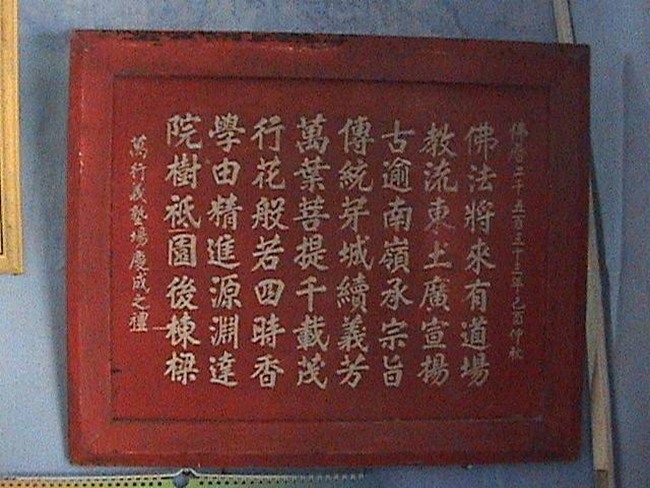 佛曆二千五百三十三年己酉仲秋
佛法將來有道場
教流東土廣宣楊
古逾南嶺承宗旨
傳統芽城續義芳
萬葉菩提千載茂
行花般若四時香
學由精進源淵達
院樹祗園後棟樑
萬行義塾場慶成之禮